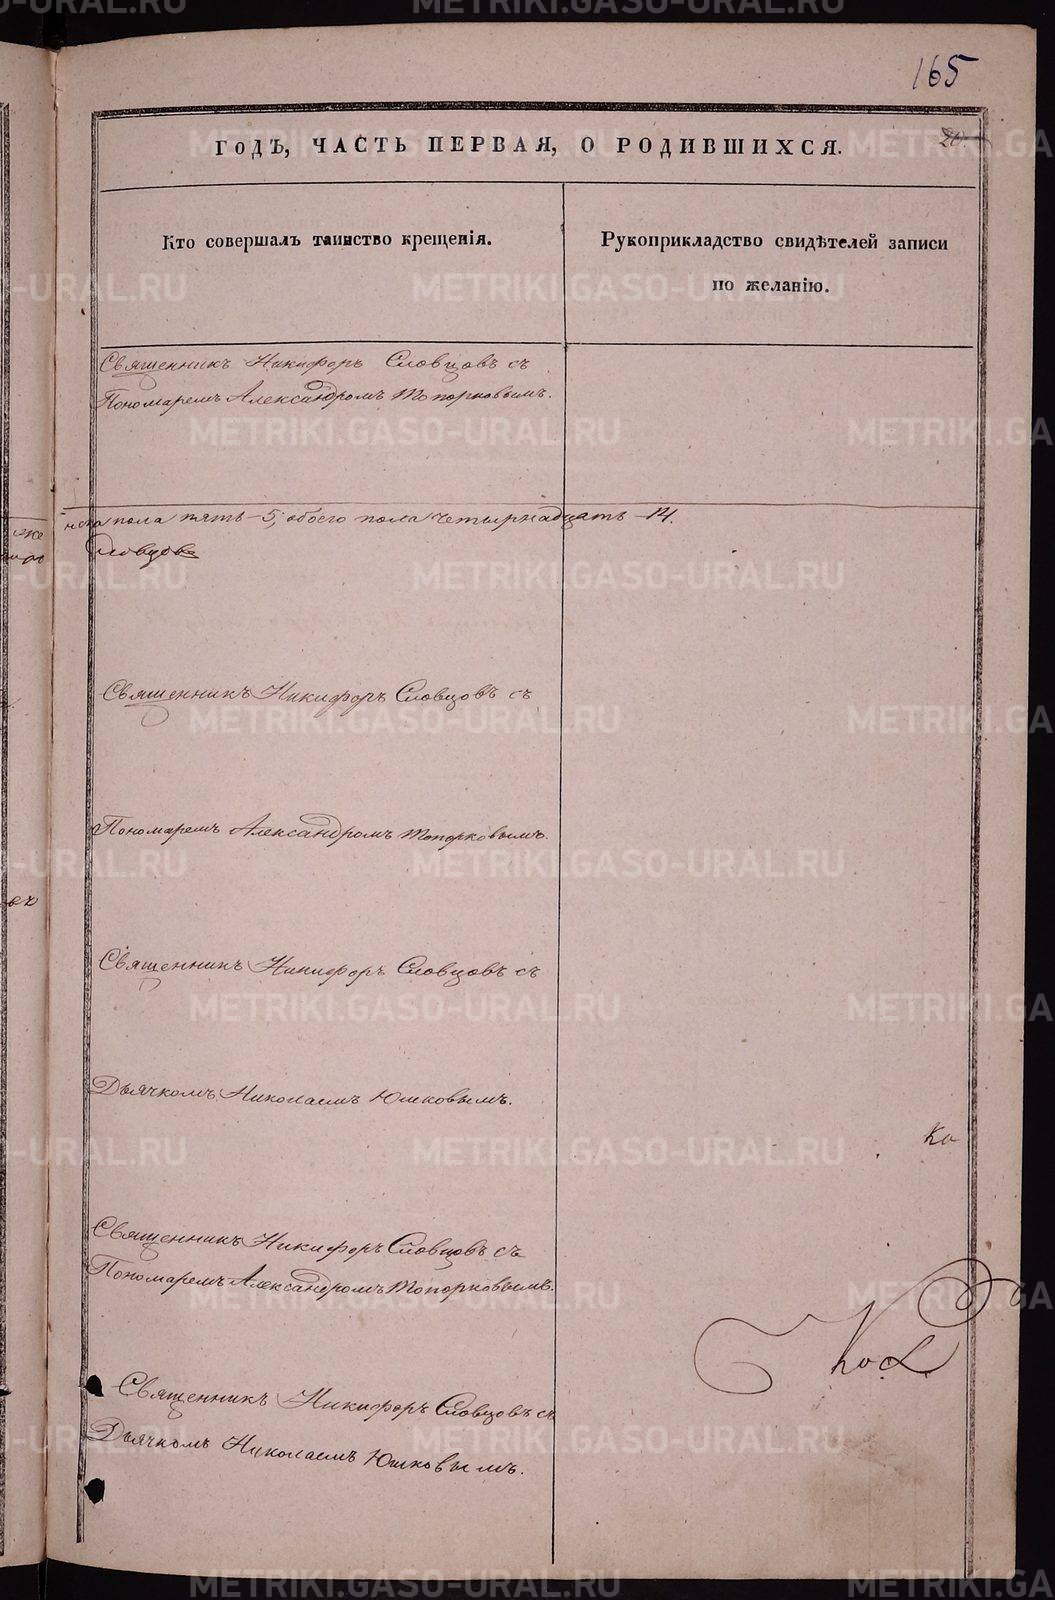 165
20.
ГОДЪ, ЧАСТЬ ПЕРВАЯ, О РОДИВШИХСЯ.
Кто совершалъ таинство крещенія.
Рукоприкладство свидѣтелей записи
по желанію.
Священникъ Никифоръ Словцовъ съ
Пономаремъ Александромъ Топорковымъ.
пола пять – 5, обоего пола четырнадцать – 14.
Словцовъ
Священникъ Никифоръ Словцовъ съ
Пономаремъ Александромъ Топорковымъ.
Священникъ Никифоръ Словцовъ съ
Дьячкомъ Николаемъ Юшковымъ.
Ко
Священникъ Никифоръ Словцовъ съ
Пономаремъ Александромъ Топорковымъ.
Священникъ Никифоръ Словцовъ съ
Дьячкомъ Николаемъ Юшковымъ.
METRIKI.GASO-URAL.RU